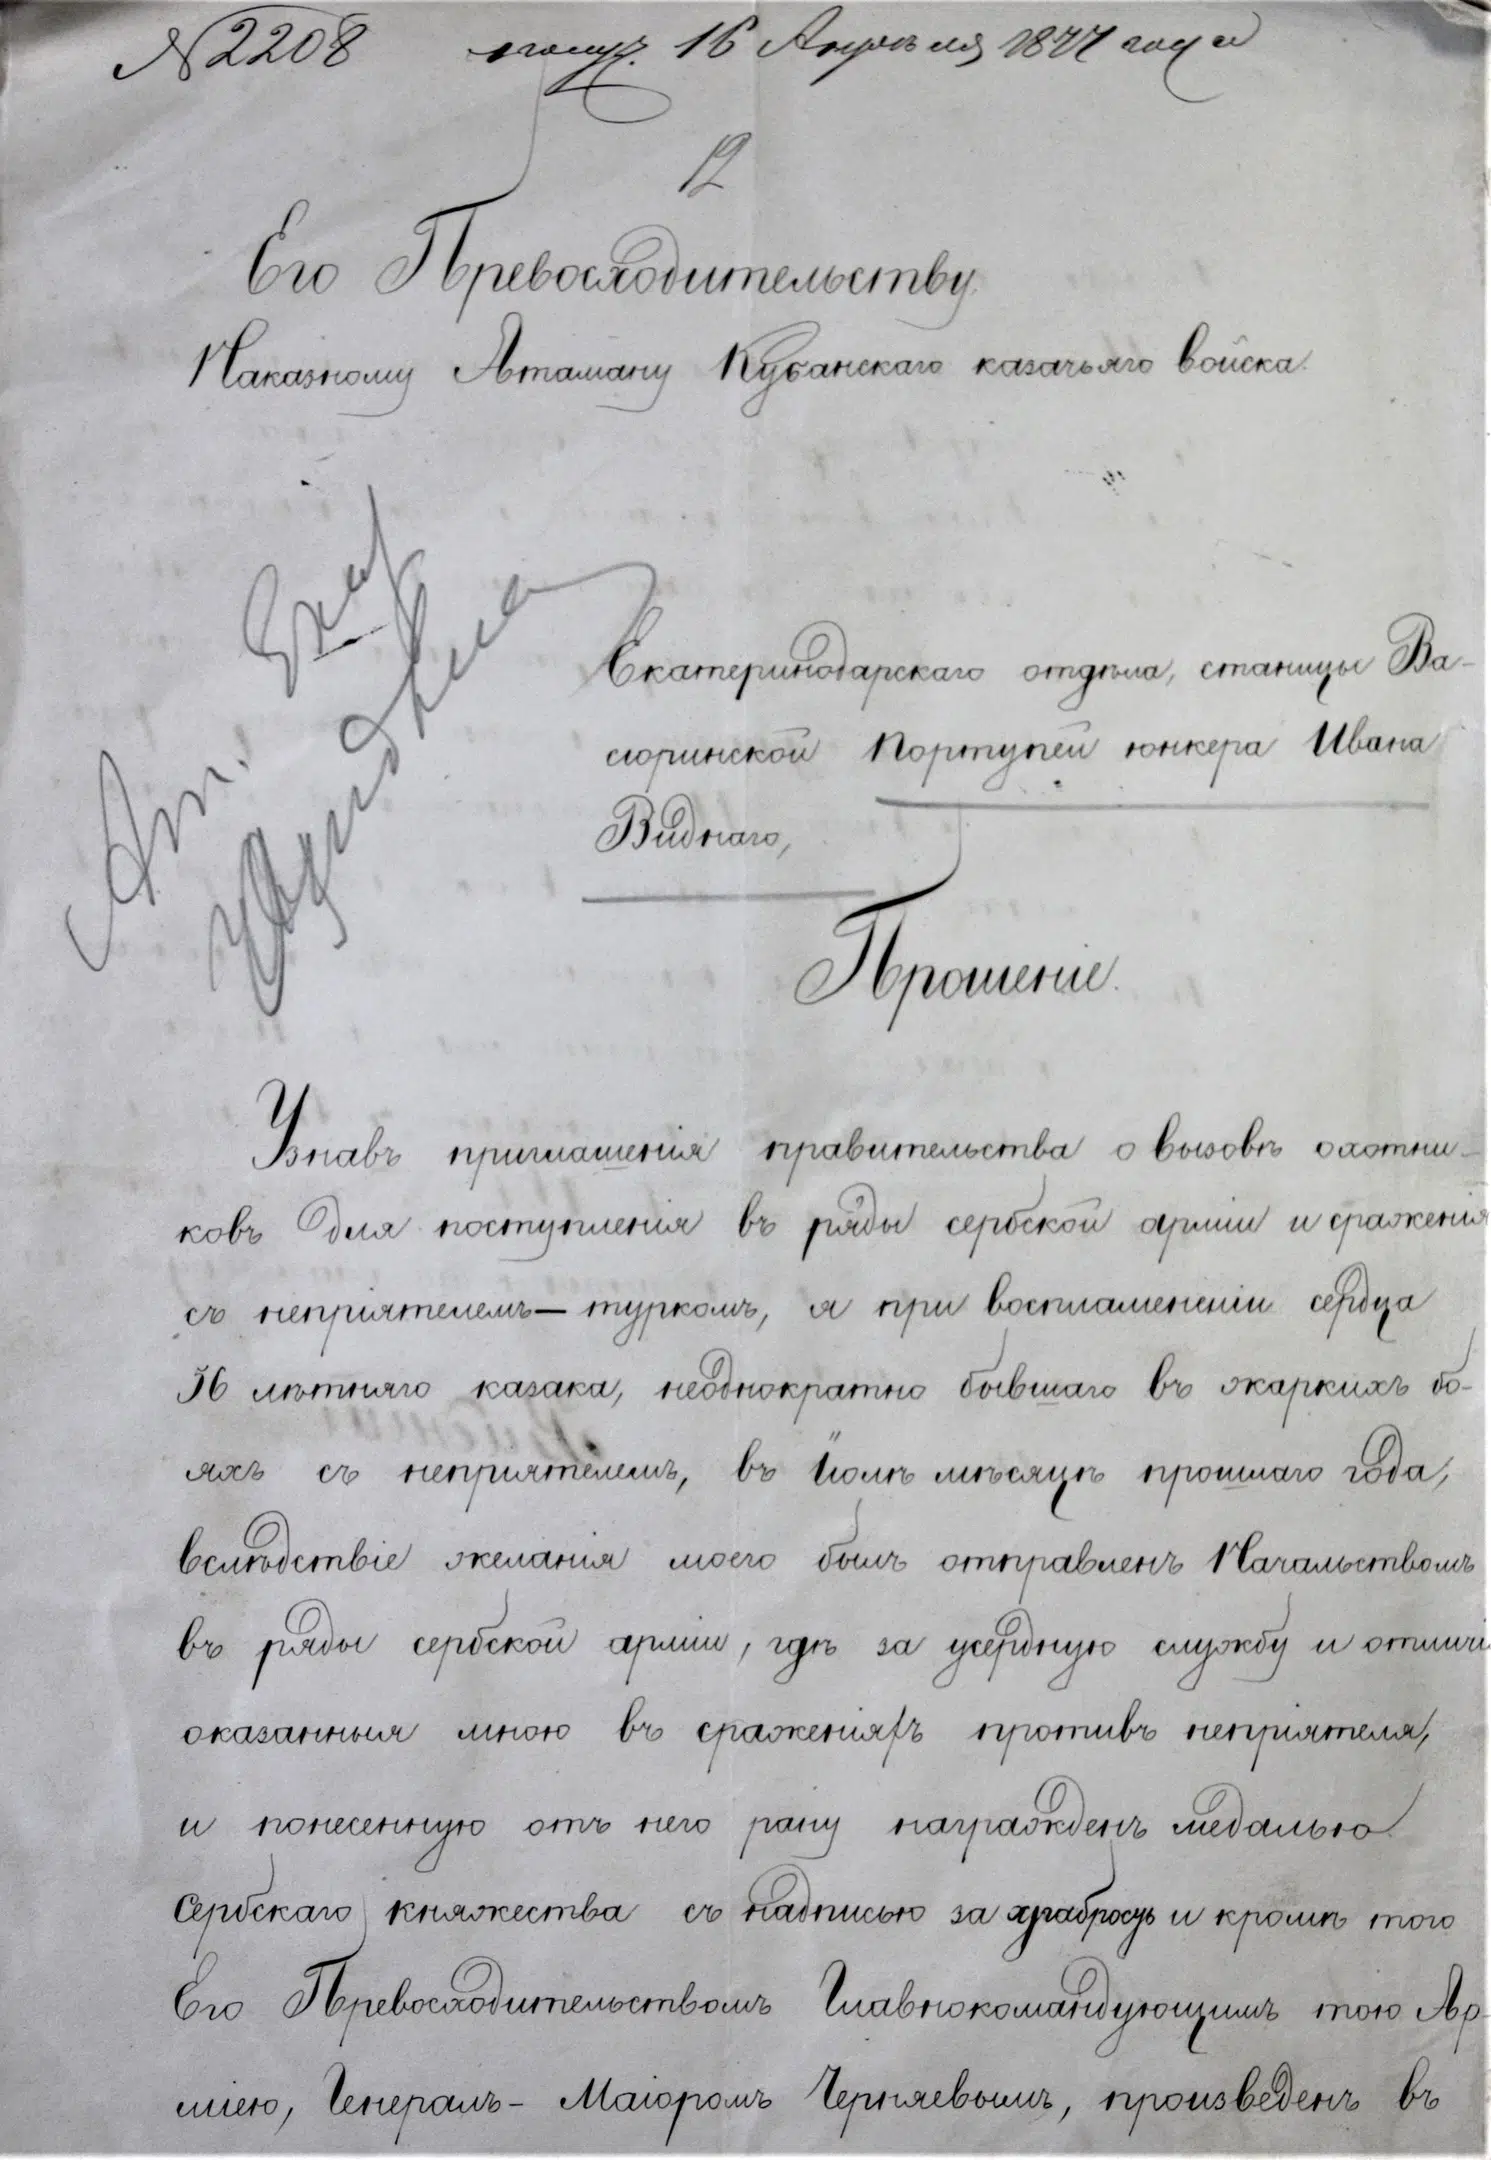 № 2208 получ. 16 Апрѣля 1877 года
12
Его Превосходительству
Наказному Атаману Кубанскаго казачьяго войска.
Екатеринодарскаго отдѣла, станицы Ва-
сюринской Портупей юнкера Ивана
Виднаго,
Прошеніе.
Узнавъ приглашенія правительства о вызовѣ охотни-
ковъ для поступленія въ ряды сербской арміи и сраженія
съ непріятелемъ – туркомъ, я при воспламененіи сердца
56 лѣтняго казака, неоднократно бывшаго въ жаркихъ бо-
яхъ съ непріятелемъ, въ Іюлѣ мѣсяцѣ прошлаго года,
вслѣдствіе желанія моего былъ отправленъ Начальствомъ
въ ряды сербской арміи, гдѣ за усердную службу и отличі
оказанныя мною въ сраженіяхъ противъ непріятеля,
и понесенную отъ него рану награжденъ медалью
Сербскаго княжества съ надписью за храбрость и кромѣ того
Его Превосходительствомъ Главнокомандующимъ тою Ар-
міею, Генералъ-Маіоромъ Черняевымъ, произведенъ въ